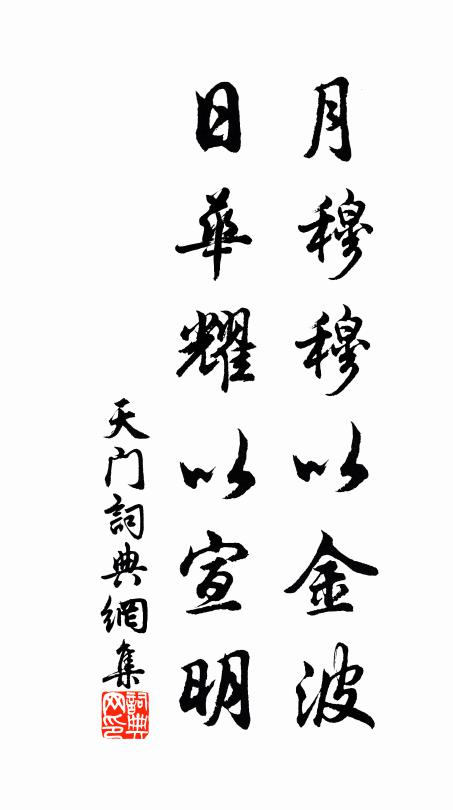 月穆穆以金波
日華耀以宣明
天门詞典網集
詞典网印